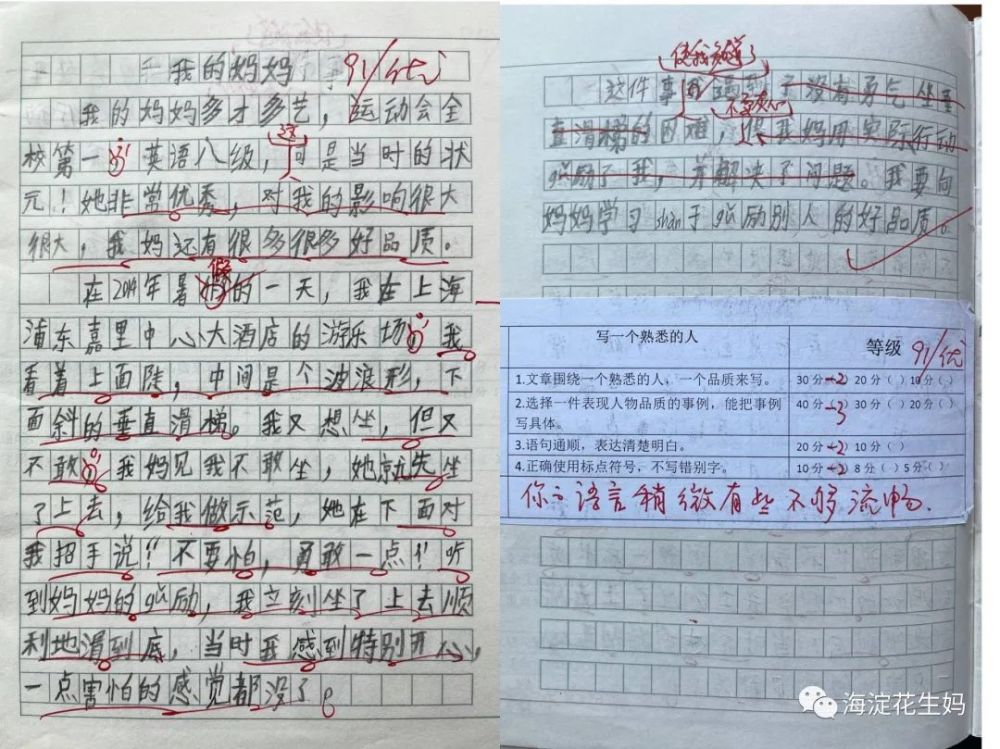 我的妈妈 91/优
我的妈妈多才多艺，运动会全
校第一，英语八级，可是当时的状
这
元！她非常优秀，对我的影响很大
很大，我妈还有很多很多好品质。
在2014年暑的一天，我在上海
假
浦东嘉里中心大酒店的游乐场，我
看着上面陡，中间是个波浪形，下
面斜的垂直滑梯。我又想坐，但又
不敢。我妈见我不敢坐，她就先坐
了上去，给我做示范，她在下面对
我招手说："不要怕，勇敢一点！"听
到妈妈的gǔ励，我立刻坐了上去顺
利地滑到底，当时我感到特别开心，
一点害怕的感觉都没了。
使我能懂了
这件事我遇到了没有勇气坐垂
不要灰心
直滑梯的困难，但我妈用实际行动
gǔ励了我，并解决了问题。我要向
妈妈学习shàn于gǔ励别人的好品质。
写一个熟悉的人 等级 91/优
1.文章围绕一个熟悉的人，一个品质来写。 30分-2 20分（ ）10分（ ）
2.选择一件表现人物品质的事例，能把事例写具体。 40分-3 30分（ ）20分（ ）
3.语句通顺，表达清楚明白。 20分-2 10分（ ）
4.正确使用标点符号，不写错别字。 10分-2 8分（ ）5分（ ）
你的语言稍微有些不够流畅.
海淀花生妈